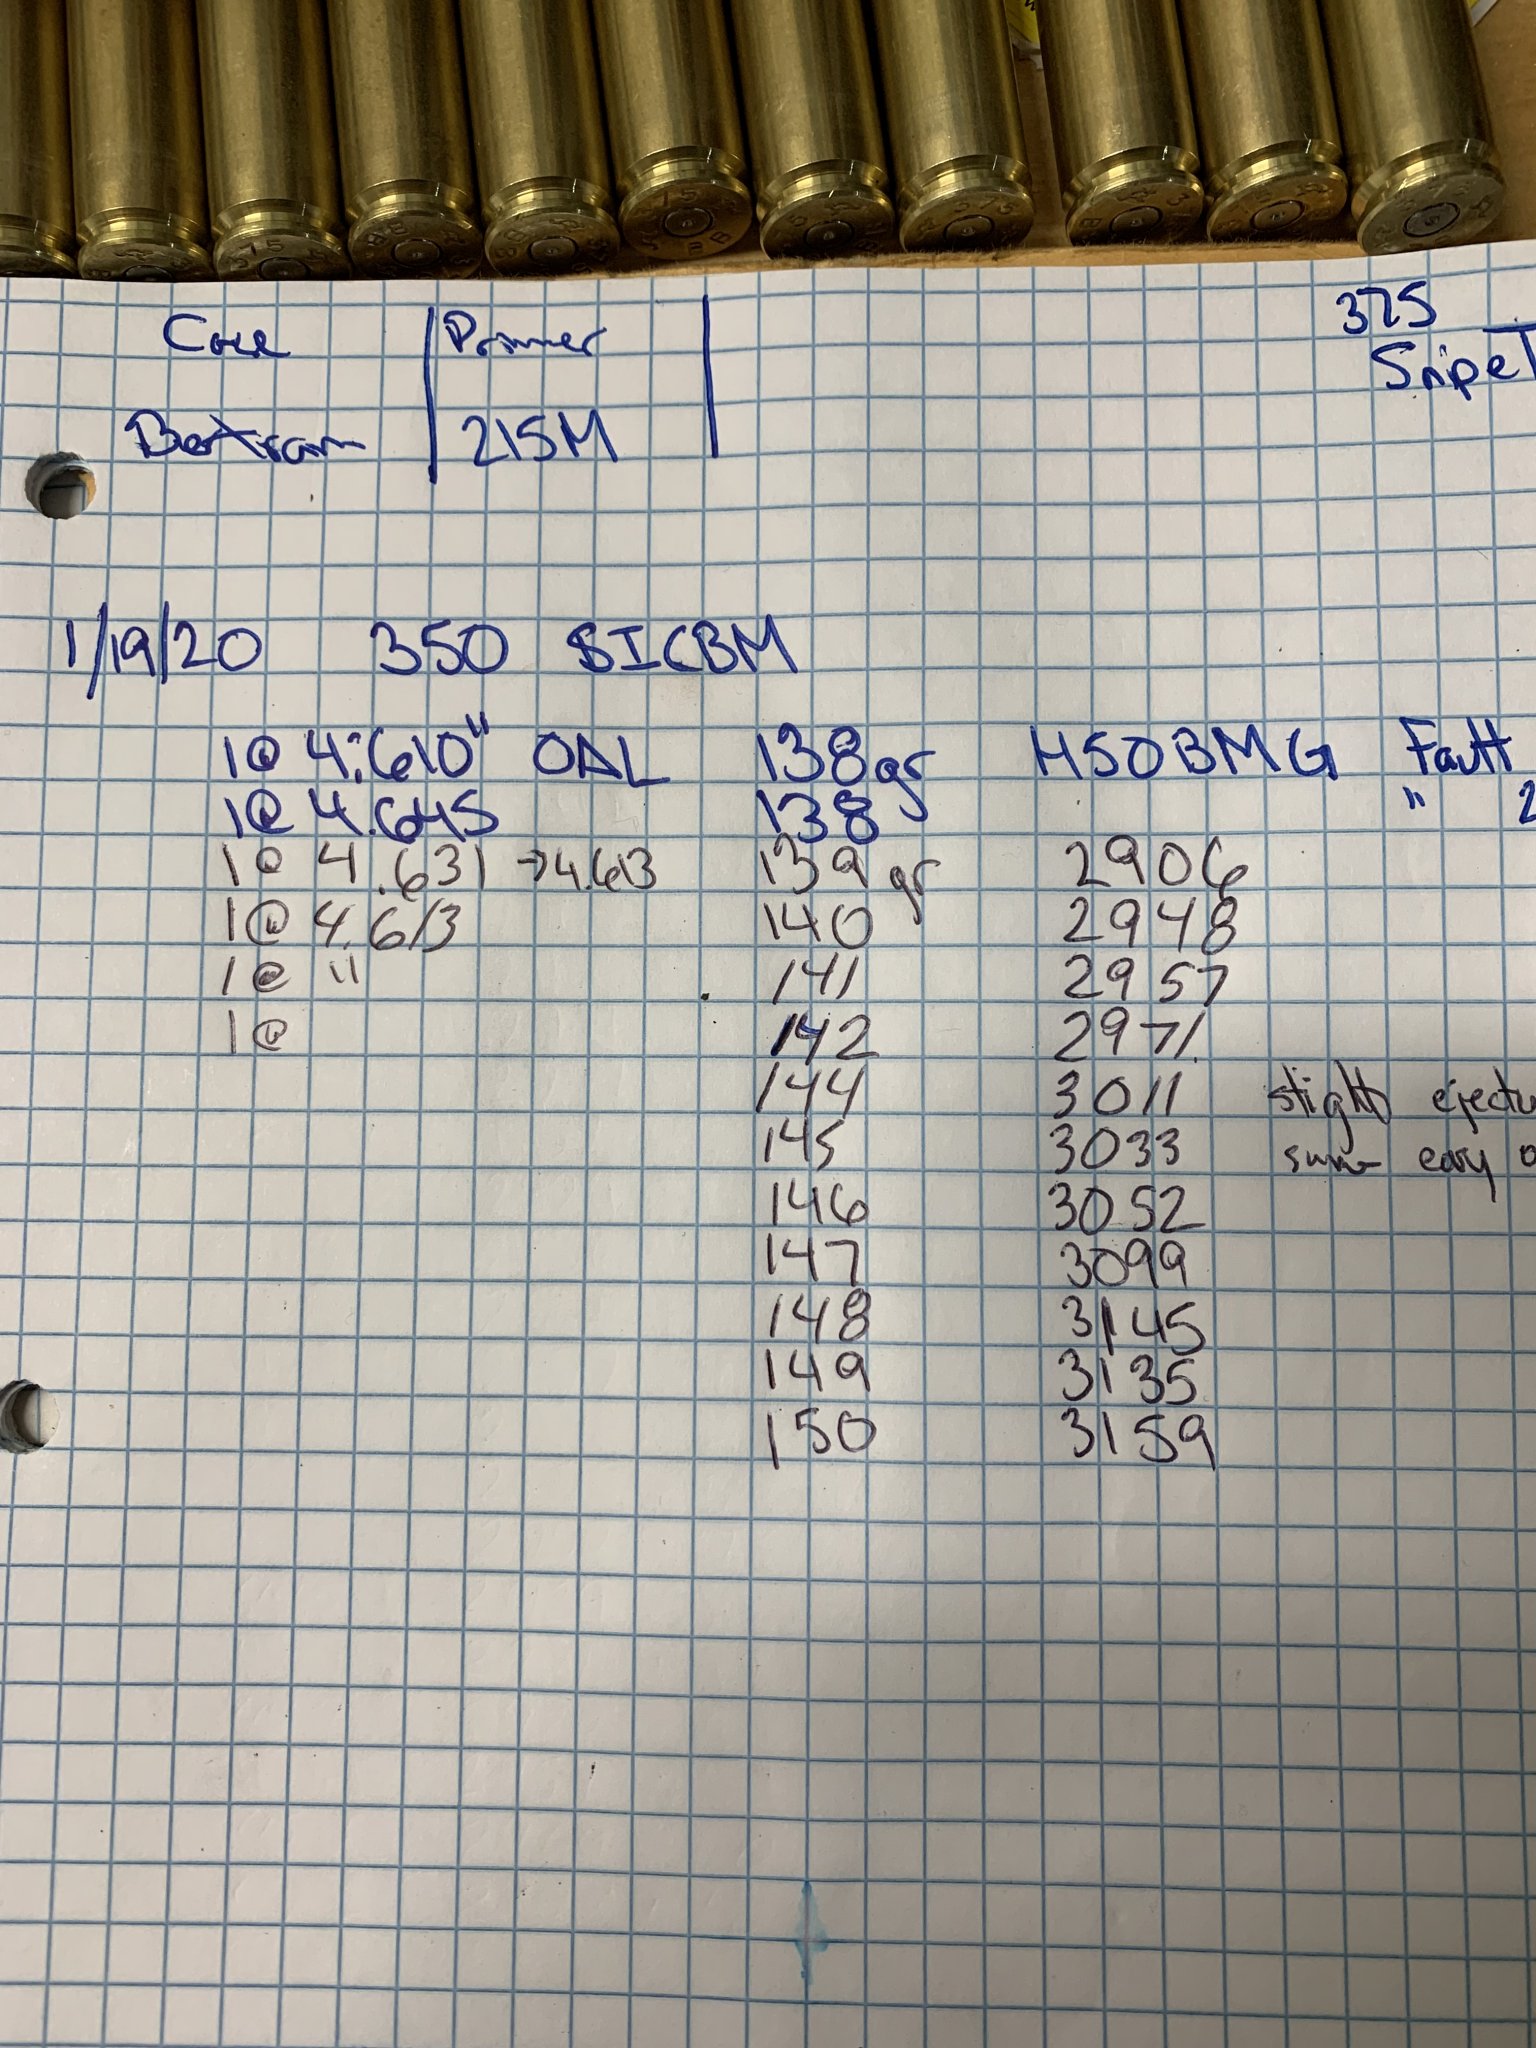 375
SnipeT
Case Primer
Bertram 215M
1/19/20 350 SICBM
1@ 4.610" OAL 138gr H50BMG Fault
1@ 4.645 138 " 2
1@ 4.631 →4.613 139 gr 2906
1@ 4.613 140 2948
1@ " 141 2957
1@ 142 2971
144 3011 slight ejecto
145 3033 same easy o
146 3052
147 3099
148 3145
149 3135
150 3159